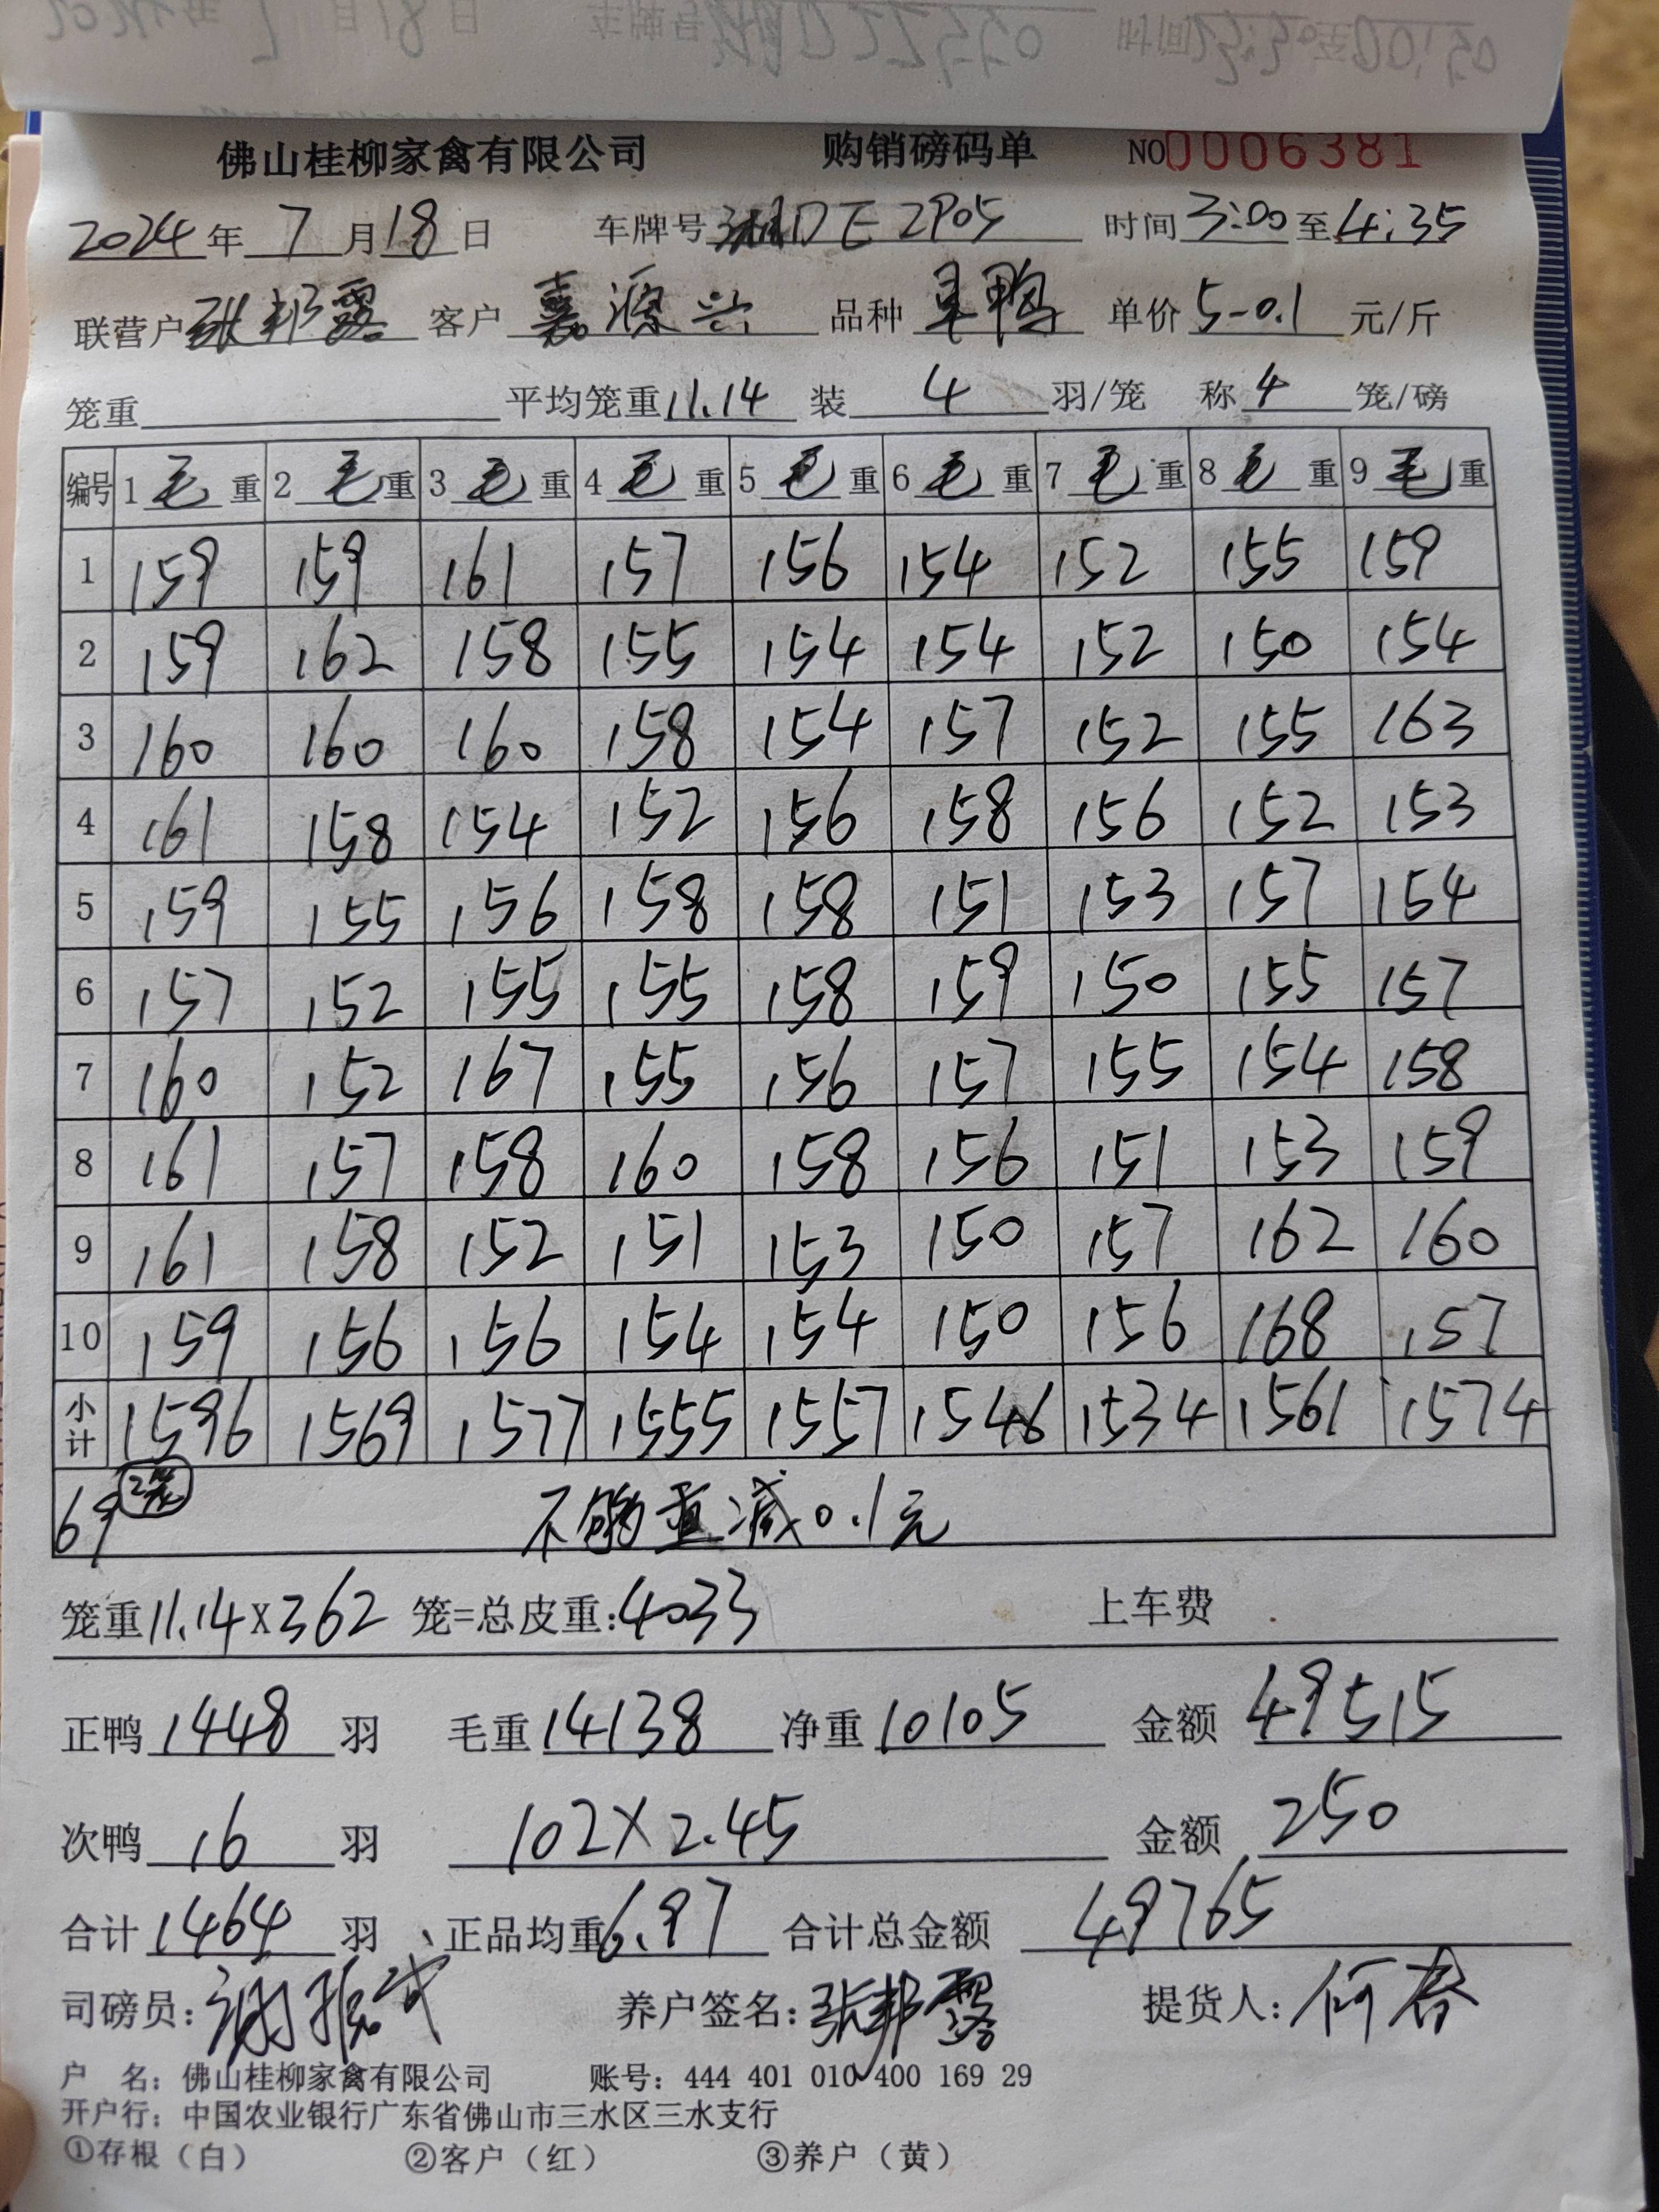 佛山桂柳家禽有限公司 购销磅码单 NO0006381
2024年7月18日 车牌号湘DE2P05 时间3:00至4:35
联营户张邦露 客户嘉源兴 品种旱鸭 单价5-0.1元/斤
笼重 平均笼重11.14 装4羽/笼 称4笼/磅
编号 1毛重 2毛重 3毛重 4毛重 5毛重 6毛重 7毛重 8毛重 9毛重
1 159 159 161 157 156 154 152 155 159
2 159 162 158 155 154 154 152 150 154
3 160 160 160 158 154 157 152 155 163
4 161 158 154 152 156 158 156 152 153
5 159 155 156 158 158 151 153 157 154
6 157 152 155 155 158 159 150 155 157
7 160 152 167 155 156 157 155 154 158
8 161 157 158 160 158 156 151 153 159
9 161 158 152 151 153 150 157 162 160
10 159 156 156 154 154 150 156 168 157
小计 1596 1569 1577 1555 1557 1546 1534 1561 1574
69 2笼 不够重减0.1元
笼重11.14X362笼=总皮重:4033 上车费
正鸭1448羽 毛重14138 净重10105 金额49515
次鸭16羽 102X2.45 金额250
合计1464羽、正品均重6.97 合计总金额49765
司磅员: 养户签名:张邦露 提货人:何春
户 名:佛山桂柳家禽有限公司 账号:444 401 010 400 169 29
开户行:中国农业银行广东省佛山市三水区三水支行
①存根(白) ②客户(红) ③养户(黄)